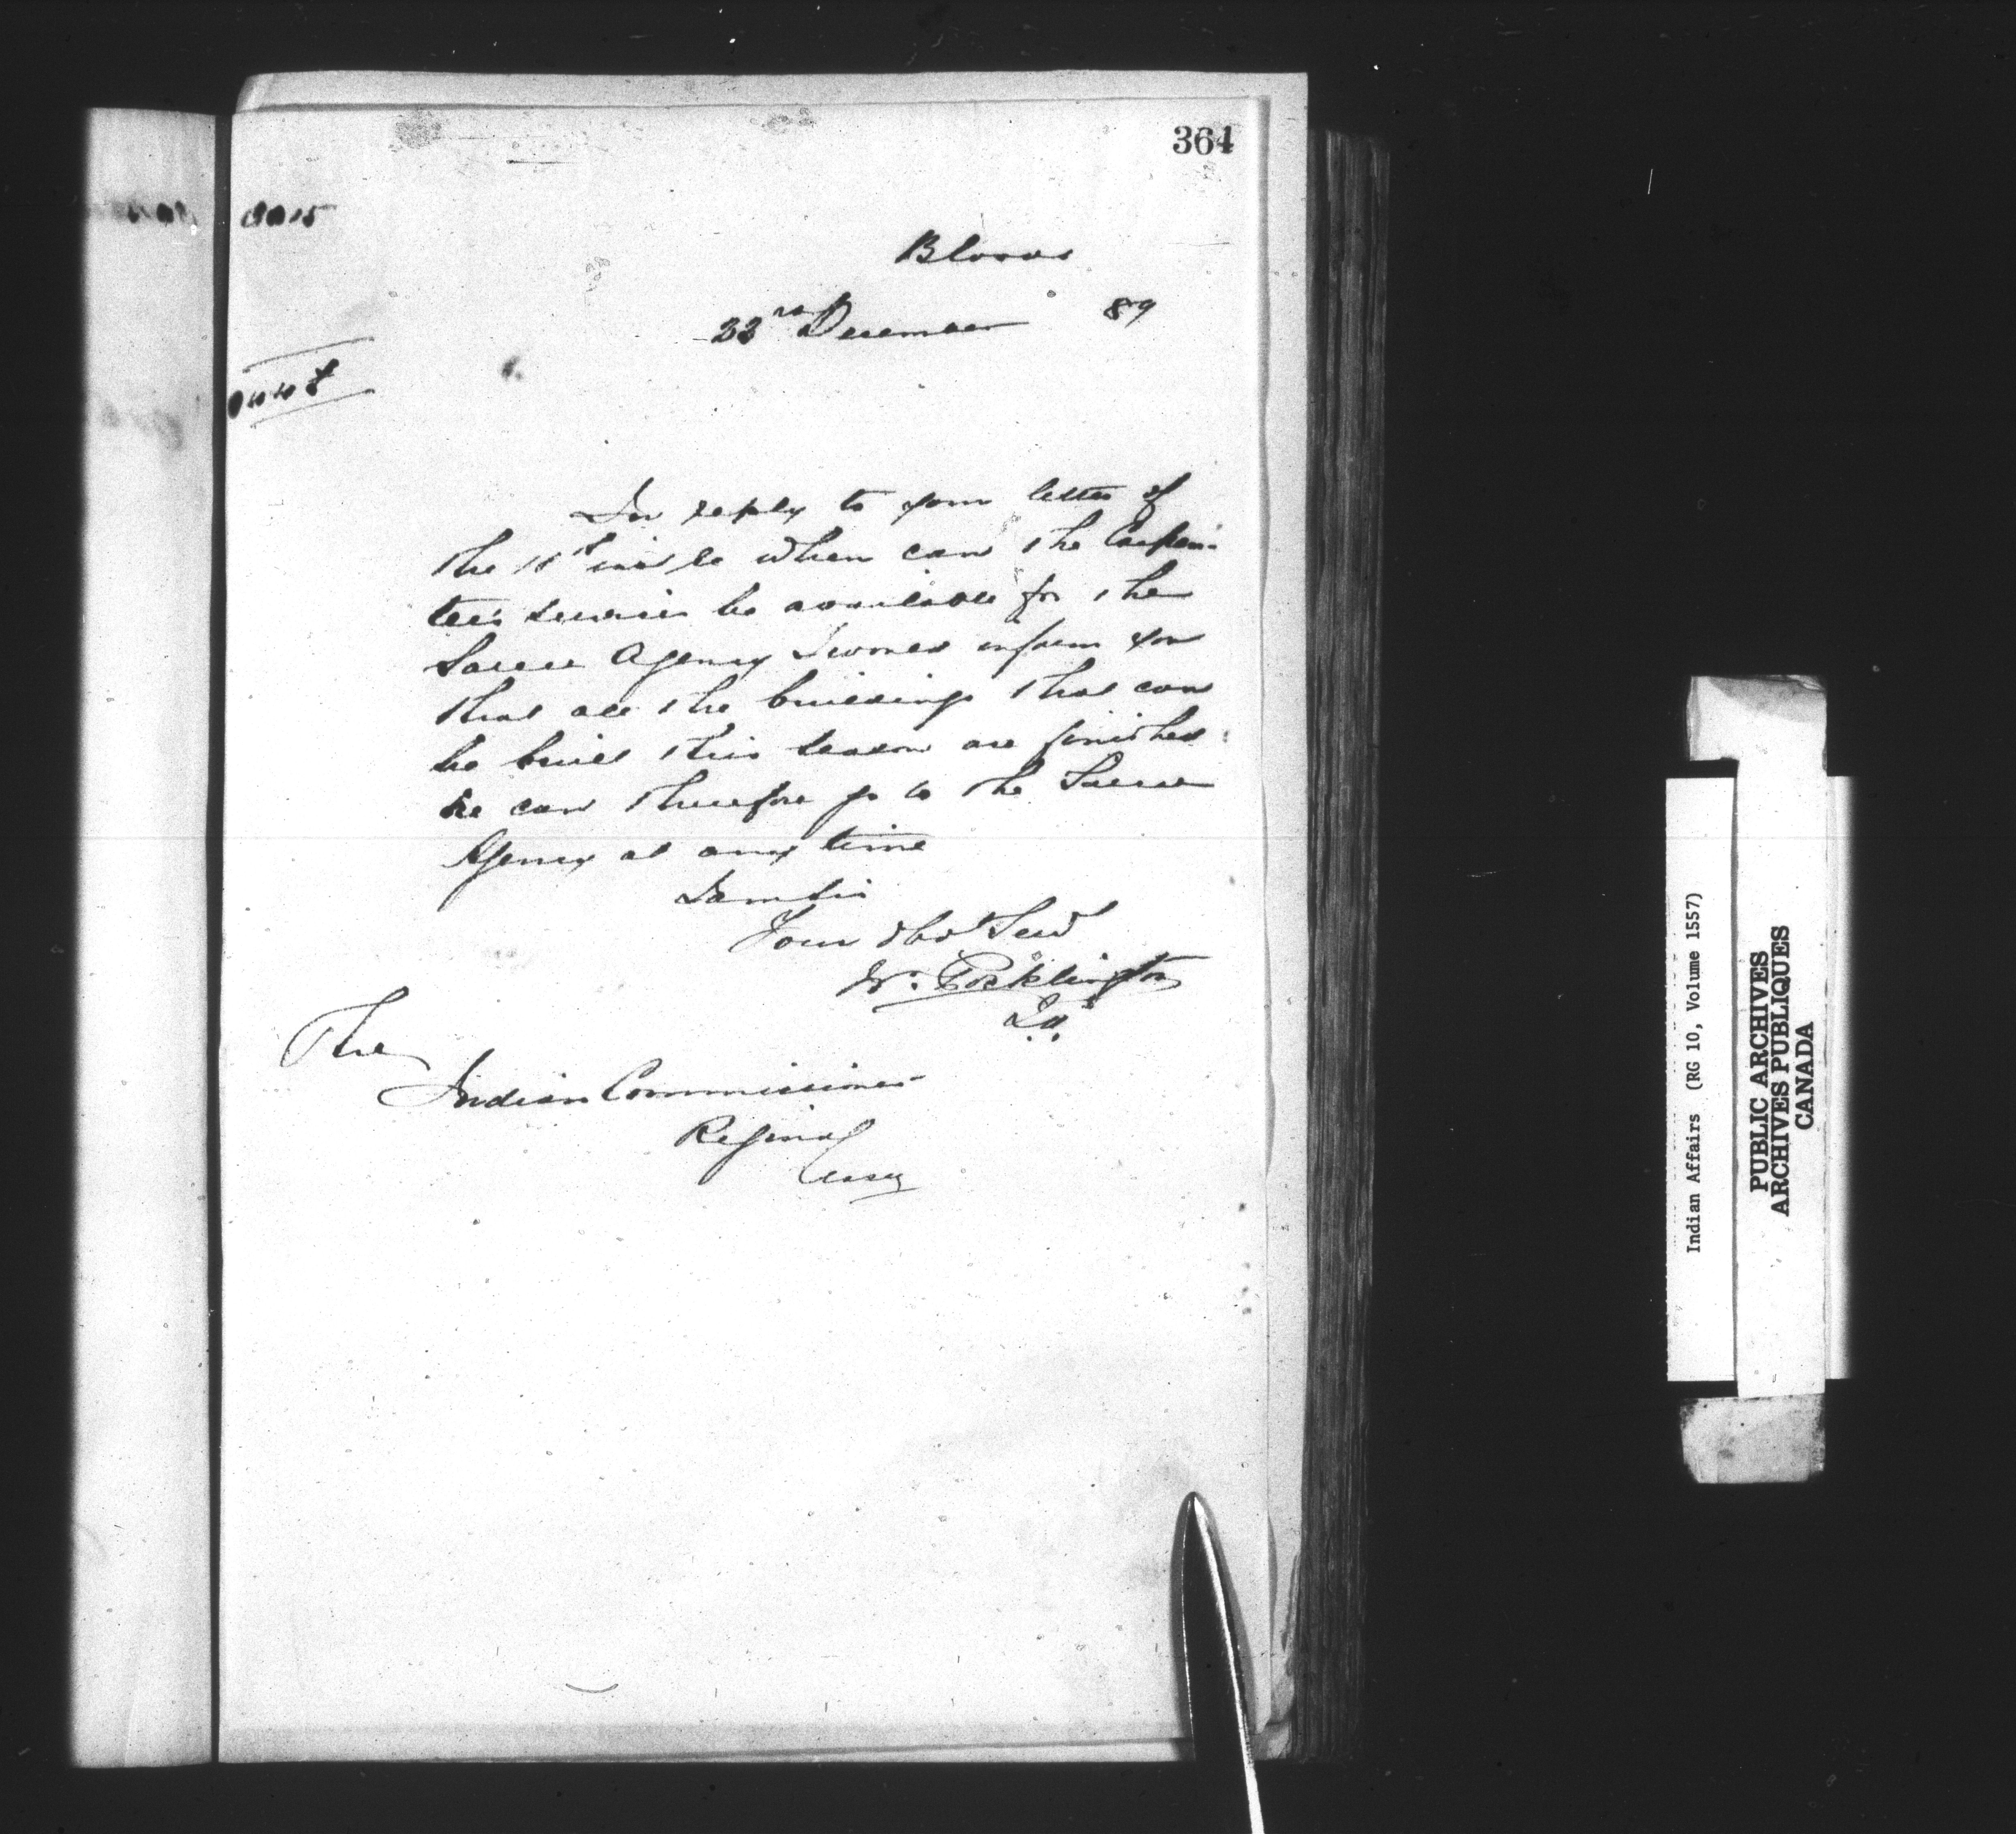 364
Bloods
23rd December 89
In reply to your letter of
the inst re when can the Carpen-
ter's services be available for the
Sarcee Agency I would inform you
that all the buildings that can
be built this season are finished
he can therefore go to the Sarcee
Agency at any time
I am Sir
Your Obdt Servt
W. Pocklington
I.A.
The
Indian Commissioner
Regina
Assa
Indian Affairs (RG 10, Volume 1557)
PUBLIC ARCHIVES
ARCHIVES PUBLIQUES
CANADA